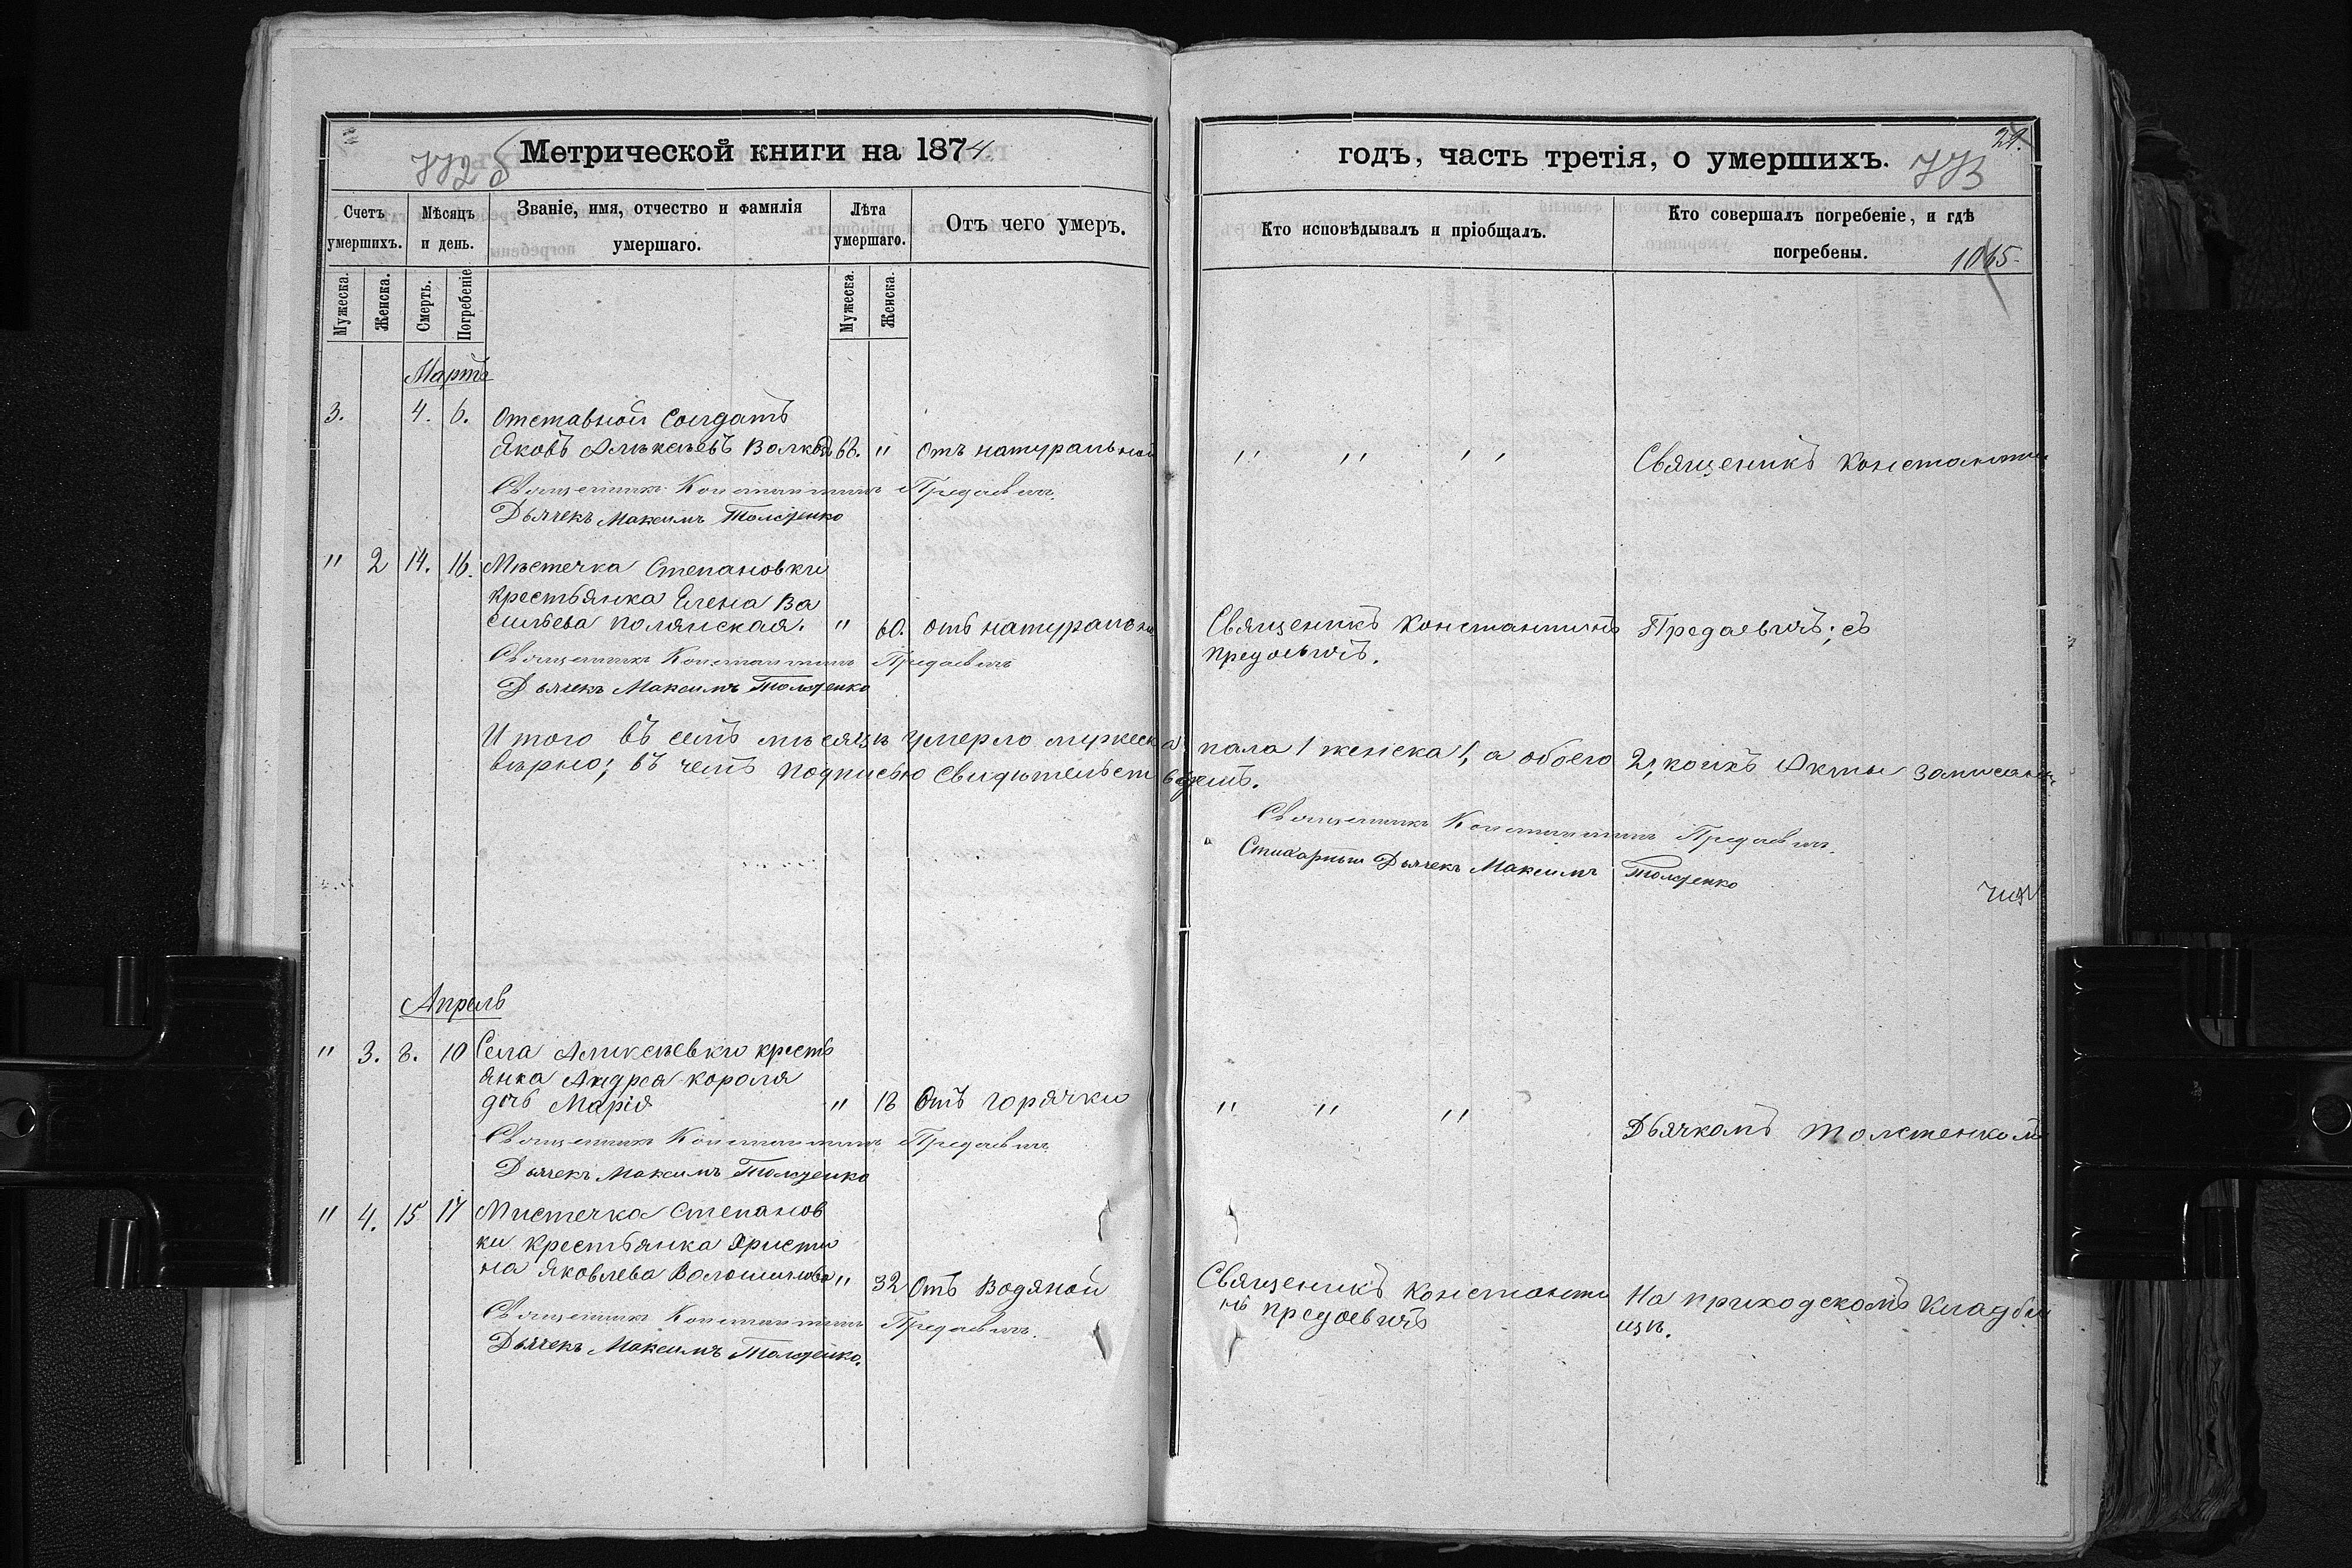 Метрической книги на 1874.
годъ, часть третія, о умершихъ.
21.
772
773
1065
Счетъ умершихъ.
Мѣсяцъ и день.
Званіе, имя, отчество и фамилія умершаго.
Лѣта умершаго.
Отъ чего умеръ.
Кто исповѣдывалъ и пріобщалъ.
Кто совершалъ погребеніе, и гдѣ погребены.
Мужеска.
Женска.
Смерть.
Погребеніе
Мужеска.
Женска.
Мартъ
3. 4. 6. Отставной Солдатъ
Яковъ Алексѣевъ 68. " Отъ натуральной " " " Священикъ Константин
Священникъ Константинъ Предаевичъ
Дьячекъ Максимъ Толстенко
" 2 14. 16. Мѣстечка Степановки
крестьянка Елена Ва
сильева Полянская. " 60. отъ натурально Священикъ Константинъ Предаевичъ; съ
Предаевичъ.
Священникъ Константинъ Предаевичъ
Дьячекъ Максимъ Толстенко
Итого въ семъ мѣсяцѣ умерло мужеска пала 1 женска 1, а обоего 2, коихъ Акты записаны
вѣрно; въ чемъ подписью Свидѣтельствуемъ.
Священникъ Константинъ Предаевичъ.
Стихарный Дьячекъ Максимъ Толстенко
Апрель
" 3. 8. 10 Села Алексѣевки кресть
янка Андрея Короля
дочь Марія " 18 Отъ горячки " " " Дьячкомъ Толстенком
Священникъ Константинъ Предаевичъ
Дьячекъ Максимъ Толстенко
" 4. 15 17 Мистечка Степанов
ки крестьянка Христи
на Яковлева Волошинова " 32 Отъ Водяной Священикъ Константи На приходскомъ Кладби
нъ Предаевичъ щѣ.
Священникъ Константинъ Предаевичъ.
Дьячекъ Максимъ Толстенко.